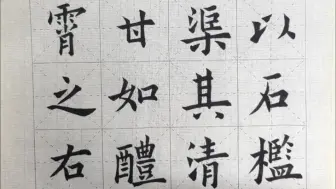 以石檻
渠其清
甘如醴
霄之右